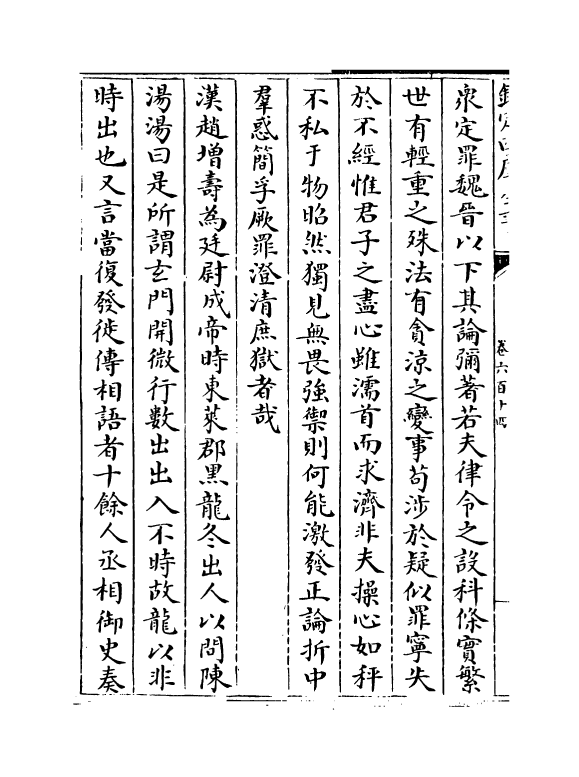 卷六百十四
衆定罪魏晉以下其論彌著若夫律令之設科條實繁
世有輕重之殊法有貪涼之變事苟涉於疑似罪寧失
於不經惟君子之盡心雖濡首而求濟非夫操心如秤
不私于物昭然獨見無畏強禦則何能激發正論折中
羣惑簡孚厥罪澄清庶獄者哉
漢趙增壽為廷尉成帝時東萊郡黒龍冬出人以問陳
湯湯曰是所謂玄門開微行數出出入不時故龍以非
時出也又言當復發徙傳相語者十餘人丞相御史奏